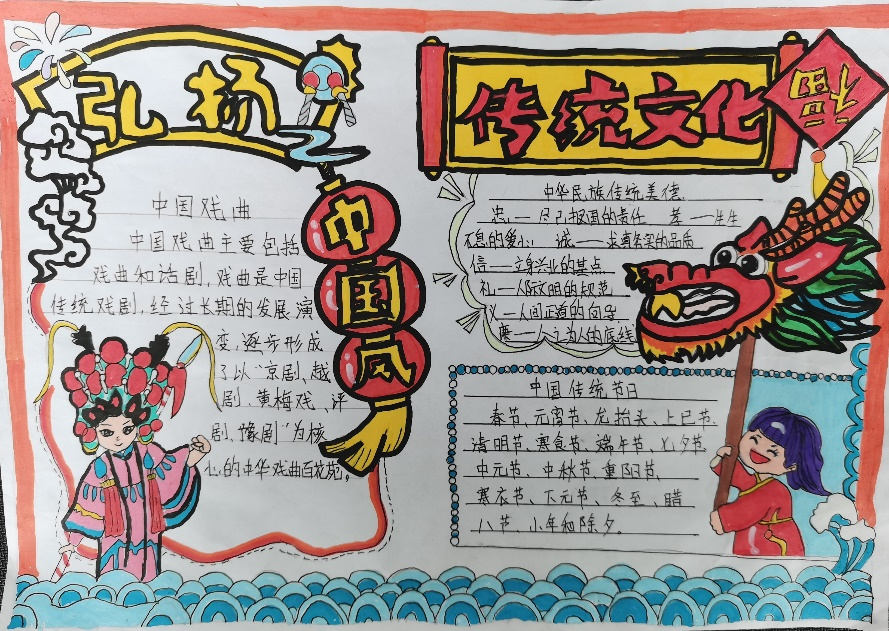 弘扬
传统文化
福
中国风
中国戏曲
中国戏曲主要包括
戏曲和话剧,戏曲是中国
传统戏剧,经过长期的发展演
变,逐步形成
了以“京剧、越
剧、黄梅戏、评
剧、豫剧”为核
心的中华戏曲百花苑。
中华民族传统美德
忠——尽己报国的责任 孝——生生
不息的爱心 诚——求真务实的品质
信——立身兴业的基点
礼——人际文明的规范
义——人间正道的向导
廉——人之为人的底线
中国传统节日
春节、元宵节、龙抬头、上巳节
清明节、寒食节、端午节、七夕节
中元节、中秋节、重阳节、
寒衣节、下元节、冬至、腊
八节、小年和除夕。